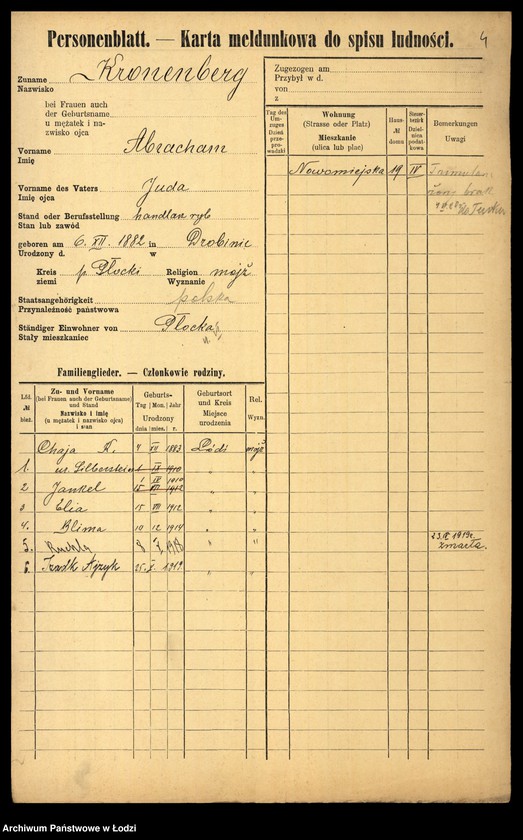 Personenblatt. — Karta meldunkowa do spisu ludności.
4
Zuname Kronenberg
Nazwisko
bei Frauen auch
der Geburtsname
u mężatek i na-
zwisko ojca
Vorname Abracham
Imię
Vorname des Vaters Juda
Imię ojca
Stand oder Berufsstellung handlan ryb
Stan lub zawód
geboren am 6. XII. 1882 in Drobinie
Urodzony d. w
Kreis p. Płocki Religion mojż
ziemi Wyznanie
Staatsangehörigkeit polska
Przynależność państwowa
Ständiger Einwohner von Płocka
Stały mieszkaniec
Zugezogen am
Przybył w d.
von
z
Tag des Umzuges
Dzień przeprowadzki
Wohnung
(Strasse oder Platz)
Mieszkanie
(ulica lub plac)
Haus-
№
domu
Steuerbezirk
Dzielnica podatkowa
Bemerkungen
Uwagi
Nowomiejska 19 IV
Familienglieder. — Członkowie rodziny.
Lfd.
№
bież.
Zu- und Vorname
(bei Frauen auch der Geburtsname)
und Stand
Nazwisko i imię
(u mężatek i nazwisko ojca)
i stan
Geburts-
Tag Mon. Jahr
Urodzony
dnia mies. r.
Geburtsort
und Kreis
Miejsce
urodzenia
Rel.
Wyzn.
Chaja K. 4 XII 1883 Łódź mojż
1. ur. Silberstein 1 IX 1910 " "
1 IX 1910
2 Jankel 15 VII 1912 " "
3 Elia 15 VII 1912 " "
4. Blima 10 12 1914 " "
5. Ruchla 8 I 1918 " " 23.IX 1919r.
zmarła.
6. Izaak Ajzyk 25. X. 1919 " "
Archiwum Państwowe w Łodzi